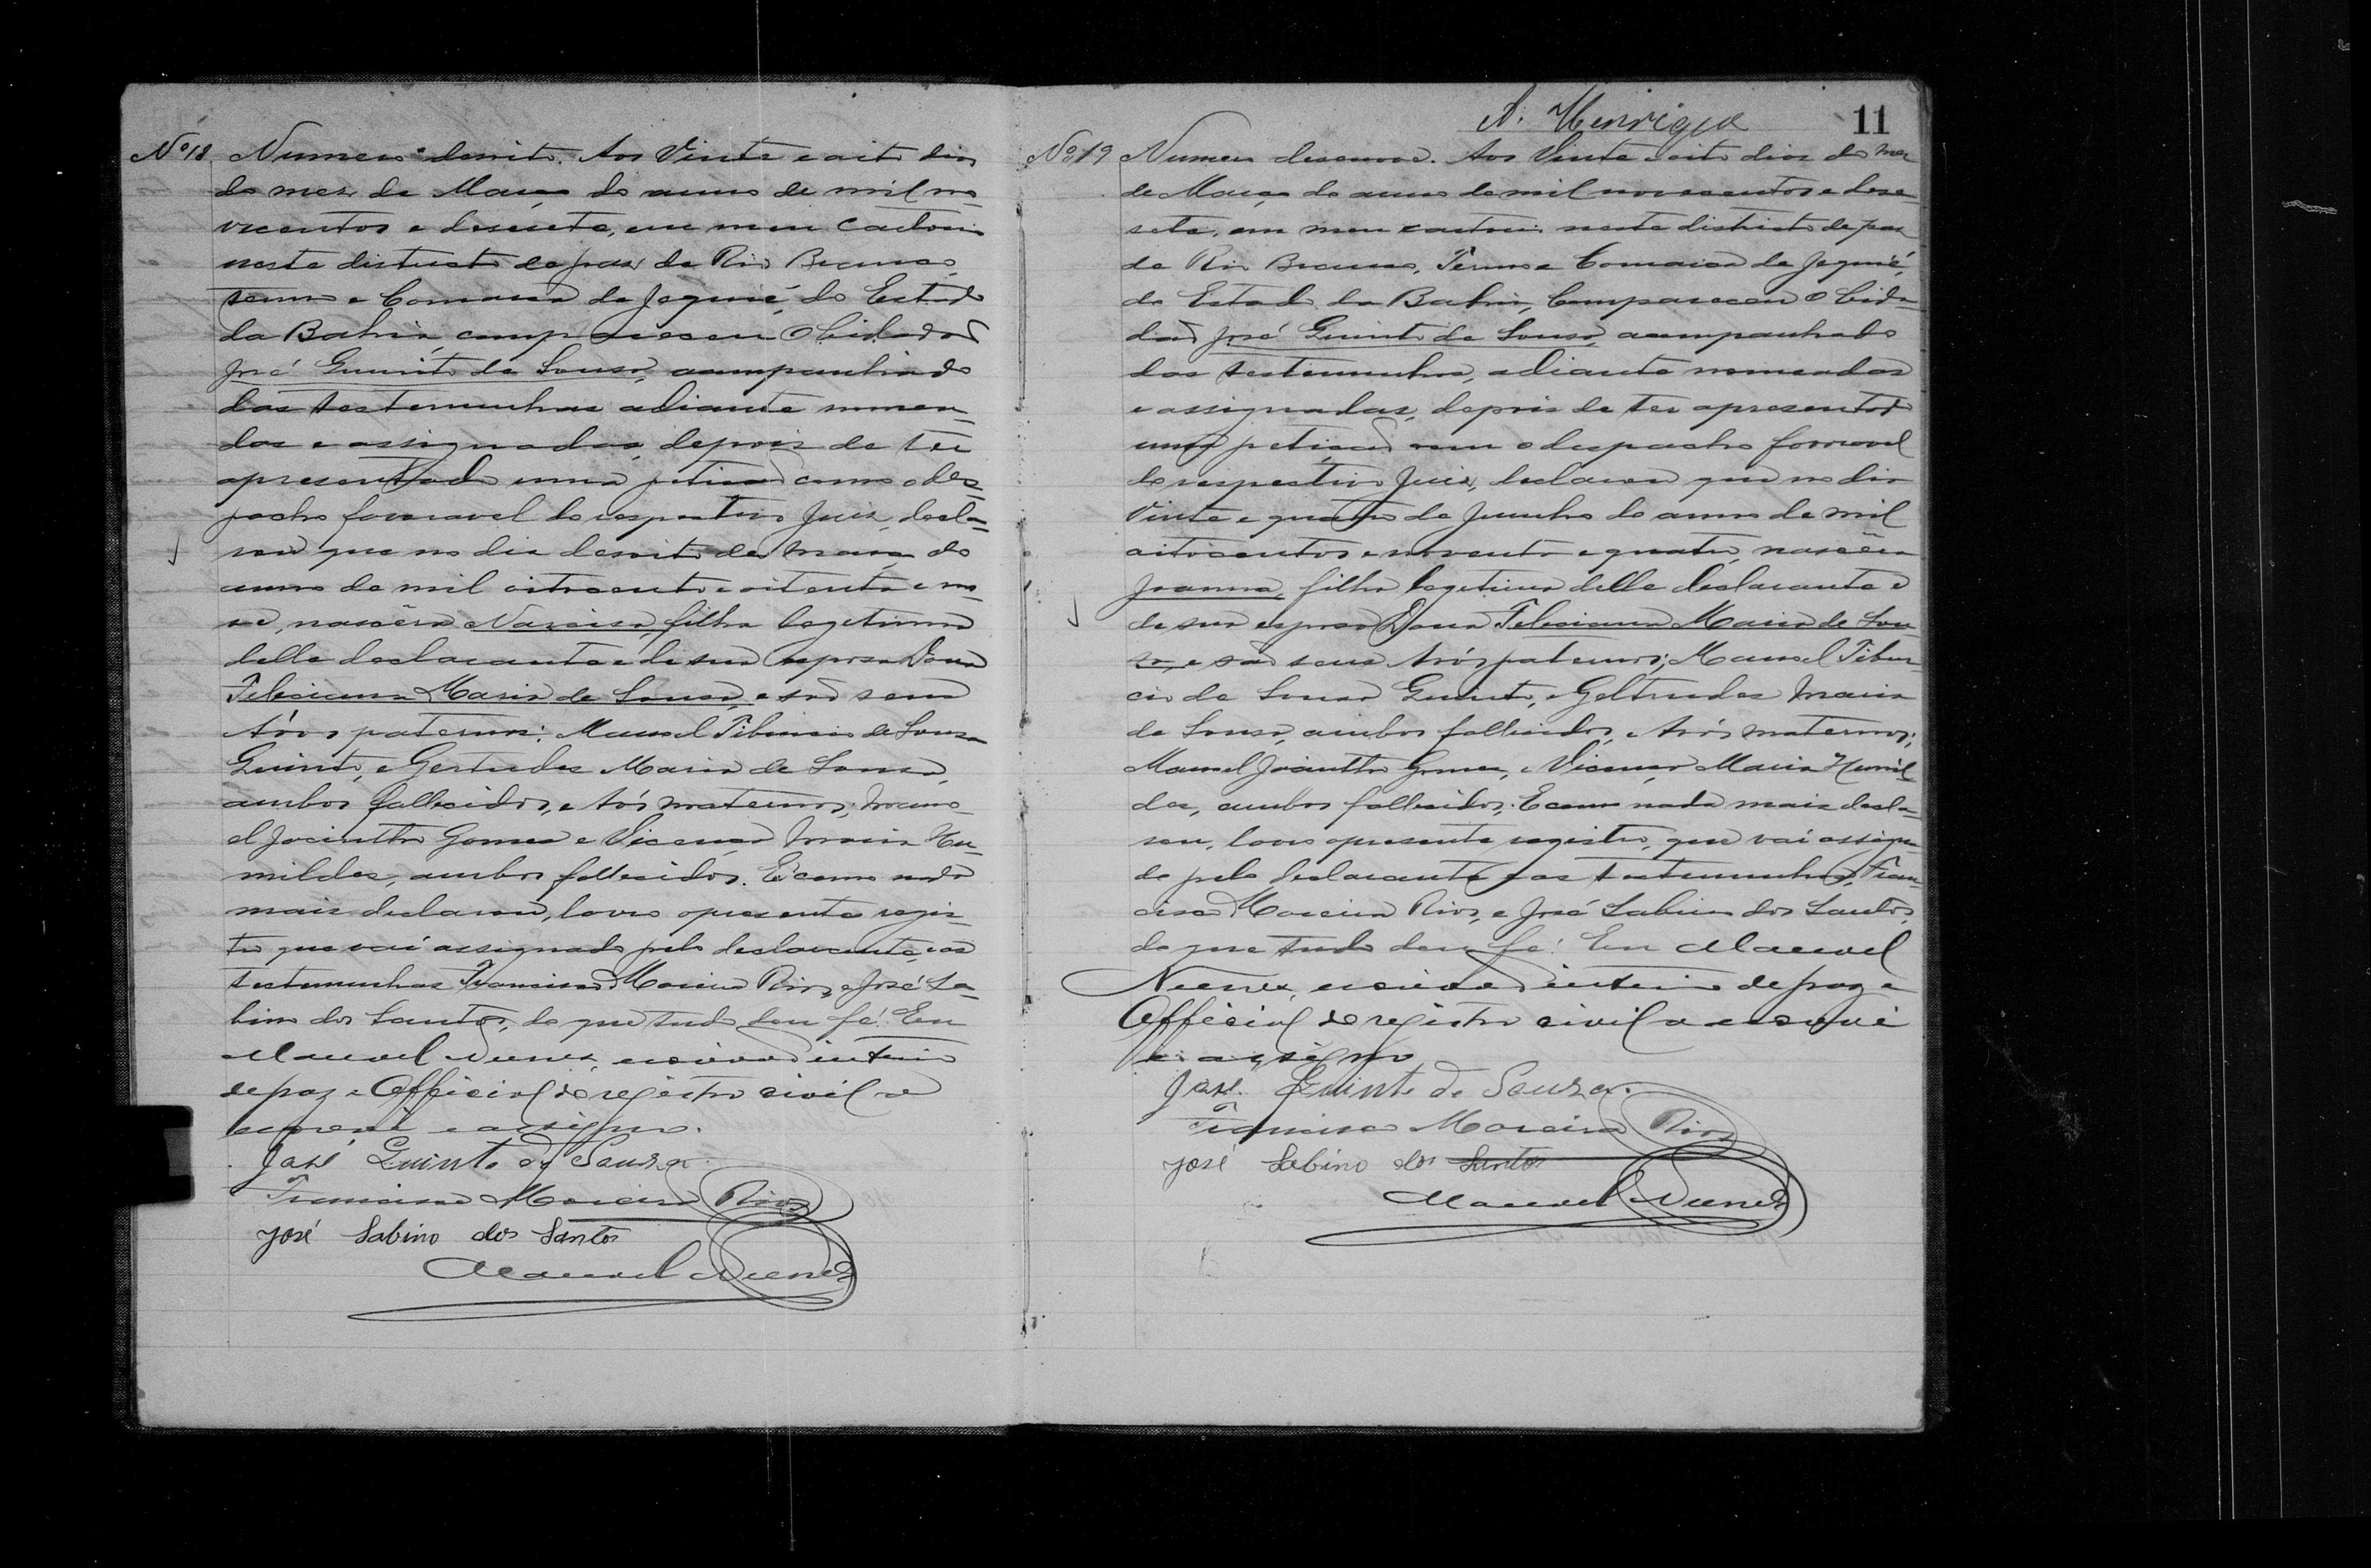 Nº 18 Numero desoito. Aos Vinte e oito dias
do mez de Março do anno de mil no-
vecentos e desesete, em meu Cartorio
neste districto de paz de Rio Branco,
termo e Comarca de Jequié, do Estado
da Bahia, compareceu o Cidadaõ
José Quinto de Sousa, acompanhado
das testemunhas adiante nomea-
das e assignadas, depois de ter
apresentado uma petiçaõ com o des-
pacho favoravel do respectivo Juiz, decla-
rou que no dia desoito de Março do
anno de mil oitocentos e oitenta e no-
ve, nascêra Narcisa, filha legitima
delle declarante e de sua esposa Dona
Feliciana Maria de Sousa, e saõ seus
Avós paternos: Manoel Tiburcio de Sousa
Quinto, e Gertrudes Maria de Sousa,
ambos fallecidos, e Avós maternos; Mano-
el Jacintho Gomes e Vicença Maria Hu-
mildes, ambos fallecidos. E como nada
mais declarou, lavro o presente regis-
tro que vai assignado pelo declarante, e as
testemunhas Francisco Moreira Rios, e José Sa-
bino dos Santos, do que tudo dou fé. Eu
Manoel Nunes, escrivaõ interino
de paz e Official do registro civil o
escrevi e assigno.
José Quinto de Souza.
Francisco Moreira Rios
José Sabino dos Santos
Manoel Nunes
11
Nº 19 Numero desenove. Aos Vinte e oito dias do mez
de Março do anno de mil novecentos e dese-
sete, em meu cartorio neste districto de paz
de Rio Branco, Termo e Comarca de Jequié,
do Estado da Bahia, Compareceu o Cida-
daõ José Quinto de Sousa, acompanhado
das testemunhas, adiante nomeadas
e assignadas, depois de ter apresentado
uma petiçaõ com o despacho favoravel
do respectivo Juiz, declarou que no dia
Vinte e quatro de Junho do anno de mil
oitocentos e noventa e quatro, nascêra
Joanna, filha legitima delle declarante e
de sua esposa Dona Feliciana Maria de Sou-
sa, e saõ seus Avós paternos; Manoel Tibur-
cio de Sousa Quinto, e Geltrudes Maria
de Sousa, ambos fallecidos, e Avós maternos;
Manoel Jacintho Gomes, e Vicença Maria Humil-
des, ambos fallecidos. E como nada mais decla-
rou, lavro o presente registro, que vai assigna-
do pelo declarante e as testemunhas, Fran-
cisco Moreira Rios, e José Sabino dos Santos,
do que tudo dou fé. Eu Manoel
Nunes, escrivaõ interino de paz e
Official do registro civil o escrevi
e assigno
José Quinto de Souza.
Francisco Moreira Rios
José Sabino dos Santos
Manoel Nunes